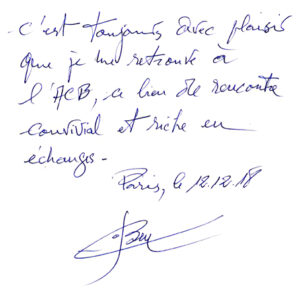 C'est toujours avec plaisir
que je me retrouve à
l'ACB, ce lieu de rencontre
convivial et riche en
échanges.
Paris, le 12.12.18